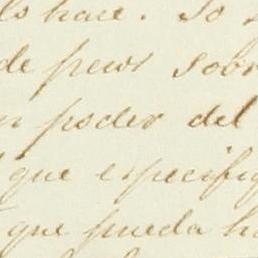 hace. So
de pewr sobr
poder del
que especifiq
que pueda ha